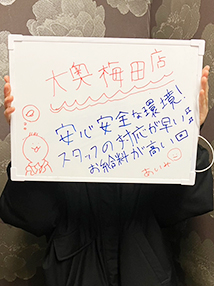 大奥梅田店
安心安全な環境!
スタッフの対応が早い
お給料が高い
あいみ